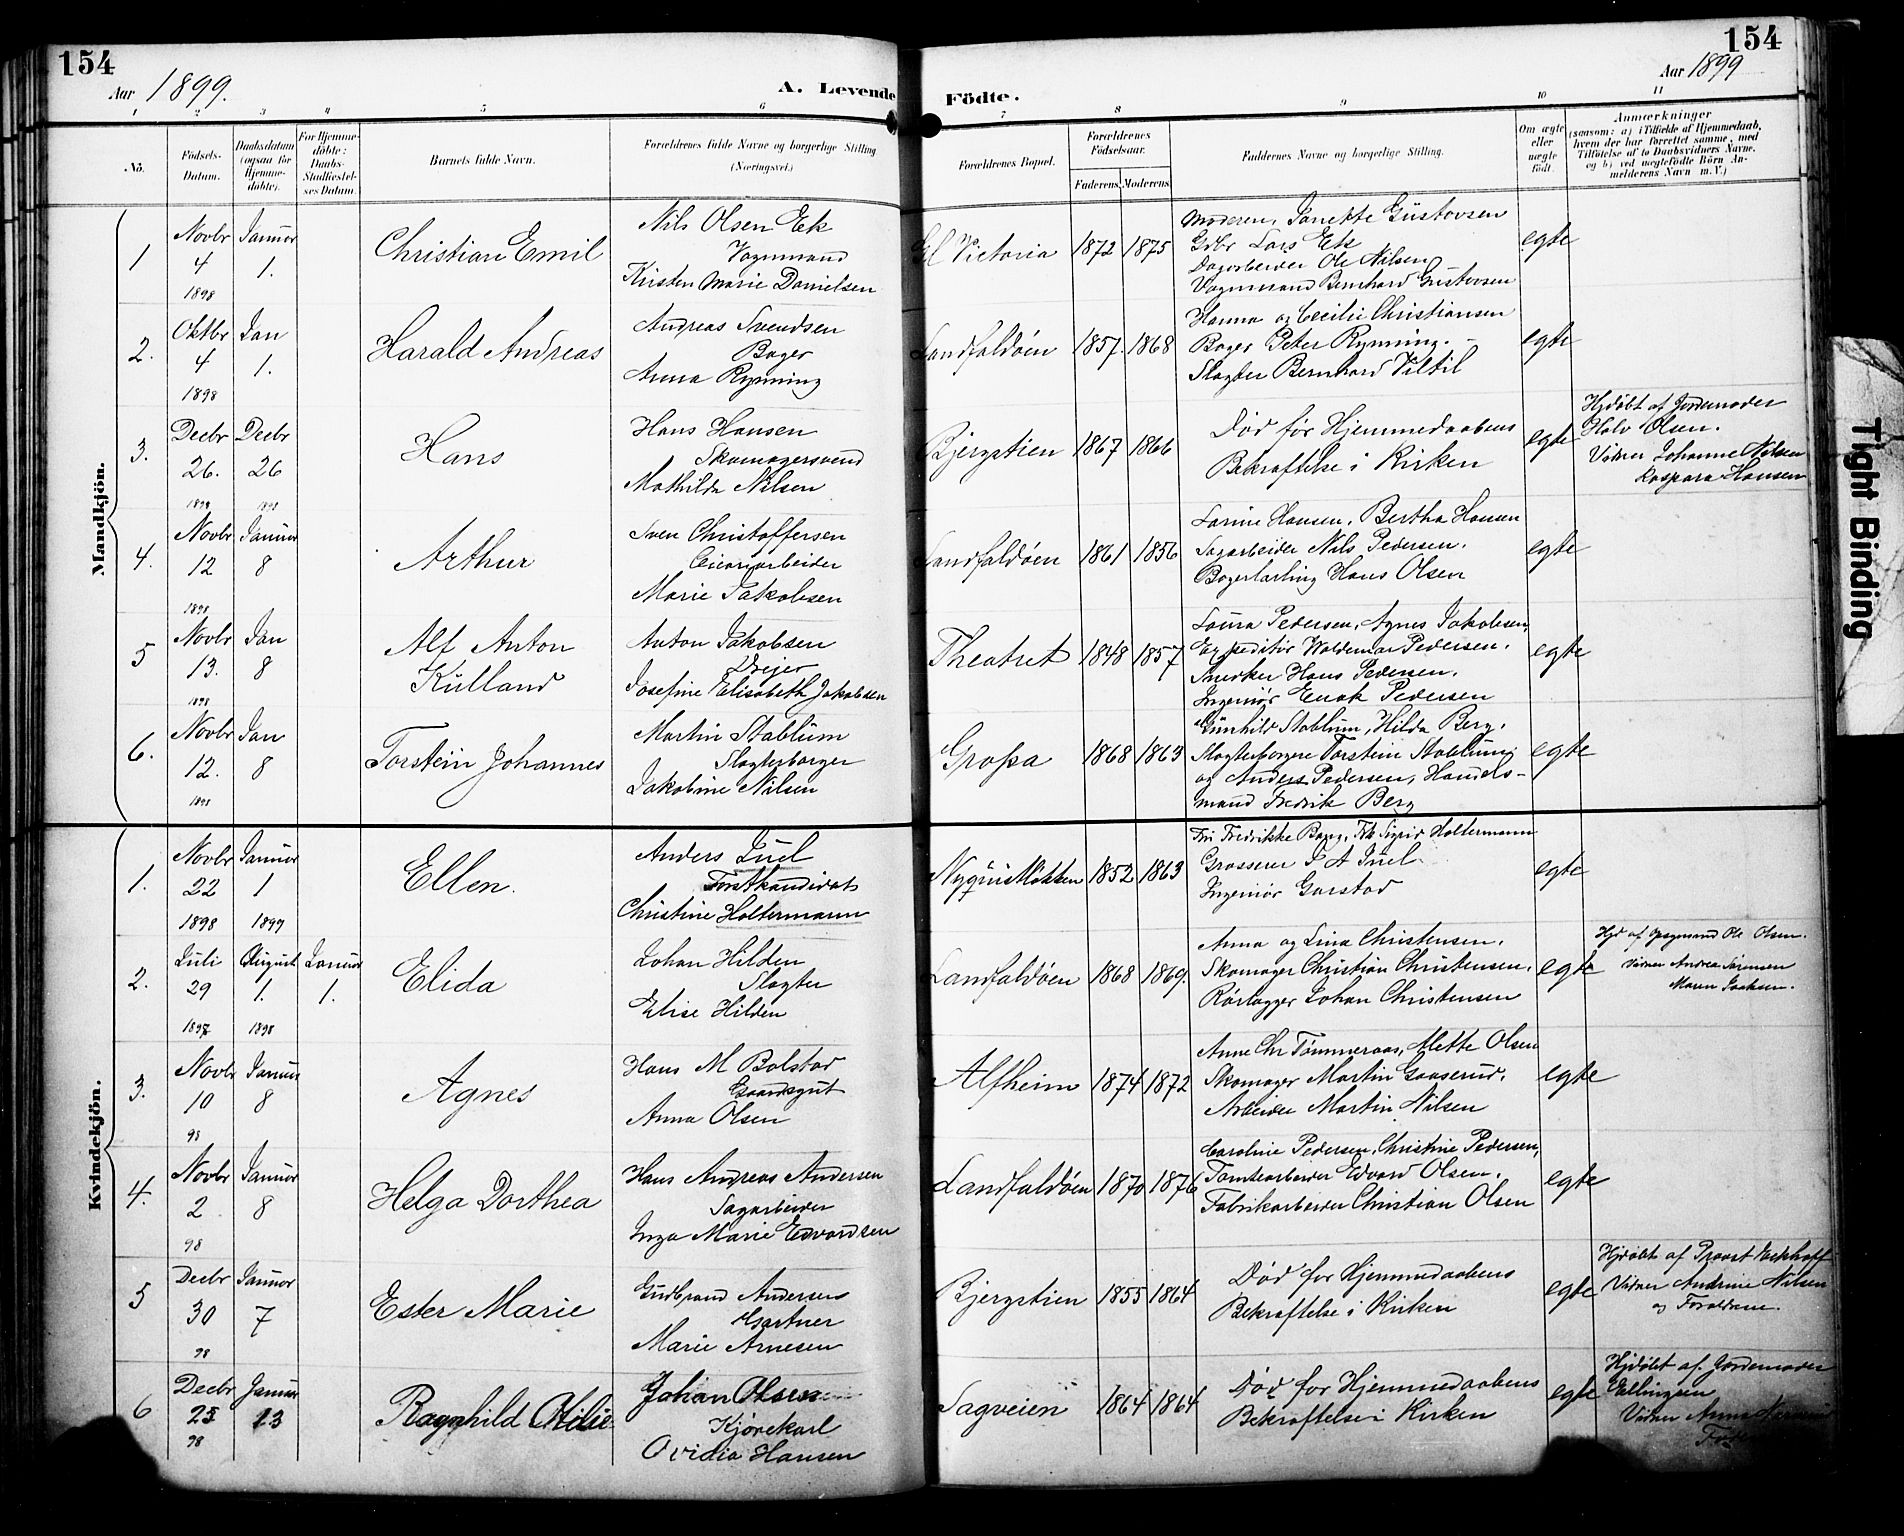 154
Aar 1899.
A. Levende Födte.
154
Aar 1899
1 2 3 4 5 6 7 8 9 10 11
No.
Födsels-Datum.
Daabsdatum (ogsaa for Hjemme-döbte).
For Hjemme-döbte: Daabs-Stadfæstel-ses Datum.
Barnets fulde Navn.
Forældrenes fulde Navne og borgerlige Stilling (Næringsvei.)
Forældrenes Bopæl.
Forældrenes Födselsaar.
Faderens. Moderens.
Faddernes Navne og borgerlige Stilling.
Om ægte eller uægte födt.
Anmærkninger
(saasom: a) i Tilfælde af Hjemmedaab, hvem der har forrettet samme, med Tilföielse af to Daabsvidners Navne, og b) ved uægtefödte Börn An-melderens Navn m. V.)
Mandkjön.
1
Novbr 4 1898
Januar 1.
Christian Emil
Nils Olsen Ek
Vognmand
Kristen Marie Danielsen
Gl Victoria
1872 1875
Moderen, Janette Gustavsen
Gdbr Lars Ek
Dagarbeider Ole Nilsen
Vognmand Bernhard Gustavsen
egte
2.
Oktbr 4 1898
Jan 1.
Harald Andreas
Andreas Svendsen
Bager
Anna Rynning
Landfaldöen
1857. 1868
Hanna og Cecilie Christiansen
Bager Peter Rynning.
Slagter Bernhard Viltil
egte
3.
Decbr 26. 1898
Decbr 26 1898
Hans
Hans Hansen
Skomagersvend
Mathilde Nilsen
Bjergstien
1867 1866
Död för Hjemmedaabens
Bekræftelse i Kirken
egte
Hjdöbt af Jordemoder
Halv Olsen.
Vidner Johanne Nilsen
Kaspara Hansen
4.
Novbr 12 1898
Januar 8
Arthur
Sven Christoffersen
Eieromarbeider
Marie Jakobsen
Landfaldöen
1861 1856
Larine Hansen, Bertha Hansen
Sagarbeider Nils Pedersen.
Bagerlærling Hans Olsen
egte
5
Novbr 13. 1898
Jan 8
Alf Anton
Kulland
Anton Jakobsen
Dreier
Josefine Elisabeth Jakobsen
Theatret
1848 1857
Laura Pedersen, Agnes Jakobsen,
Expeditör Waldemar Pedersen.
Snedker Hans Pedersen.
Ingeniör Enok Pedersen
egte
6.
Novbr 12. 1898
Jan 8
Torstein Johannes
Martin Stablum
Slagterborger
Jakobine Nilsen
Gropa
1868 1863
Gunhild Stablum, Hilda Berg.
Slagterborgere Torstein Stablum
og Anders Pedersen, Handels-
mand Fredrik Berg
egte
Kvindekjön.
1.
Novbr 22 1898
Januar 1 1899
Ellen.
Anders Juel
Forstkandidat
Christine Holtermann
Nyquistløkken
1852 1863
Fru Fredrikke Borg, Frk Sigrid Holtermann
Grosserer J A Juel
Ingeniör Garstad
egte
2.
Juli 29 1897
August 1. 1898
Januar 1.
Elida
Johan Hilden
Slagter
Elise Hilden
Landfaldöen
1868 1869.
Anna og Lina Christensen.
Skomager Christian Christensen.
Rörlægger Johan Christensen
egte
Hjd af Opsynsmand Ole Olsen.
Vidner Andrea Sörensen
Maren Isaksen.
3.
Novbr 10 98
Januar 8
Agnes
Hans M Bolstad
Gaardsgut
Anna Olsen
Alfheim
1874 1872
Anne Chr Tömmeraas, Mette Olsen
Skomager Martin Gaaserud.
Arbeider Martin Nilsen
egte
4.
Novbr 2 98
Januar 8
Helga Dorthea
Hans Andreas Andersen
Sagarbeider
Inga Marie Edvardsen
Landfaldöen
1870 1876
Caroline Pedersen, Christine Pedersen,
Tomtearbeider Edvard Olsen.
Fabrikarbeider Christian Olsen
egte
5
Decbr 30 98
Januar 7
Ester Marie
Gudbrand Andersen
Gartner
Marie Arnesen
Bjergstien
1855 1864
Död for Hjemmedaabens
Bekræftelse i Kirken
egte
Hjdöbt af Provst Eckhoff
Vidner Andrine Nilsen
og Forældrene.
6
Decbr 25 98
Januar 13
Ragnhild Otilie
Johan Olsen
Kjörekarl
Ovidia Hansen
Sagveien
1864 1864
Död for Hjemmedaabens
Bekræftelse i Kirken
egte
Hjdöbt af. Jordemoder
Ellingsen
Vidner Anna
Tight Binding